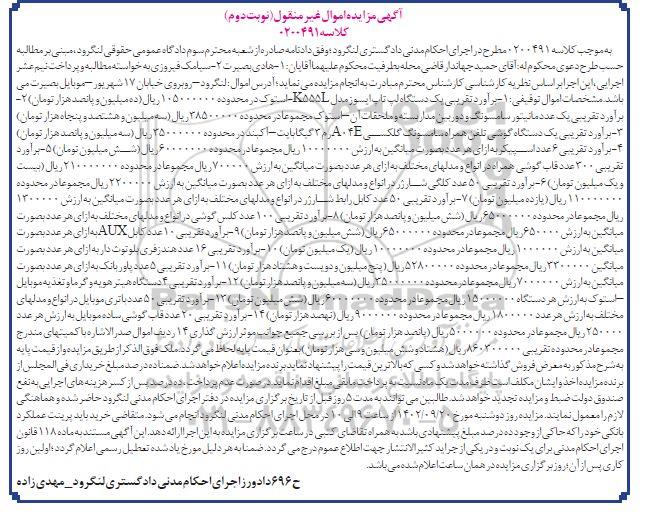 آگهی مزایده اموال غیر منقول (نوبت دوم)
کلاسه ۰۲۰۰۴۹۱
به موجب کلاسه ۰۲۰۰۴۹۱ مطرح در اجرای احکام مدنی دادگستری لنگرود؛ وفق دادنامه صادره از شعبه محترم سوم دادگاه عمومی حقوقی لنگرود، مبنی بر مطالبه
حسب طرح دعوی محکوم له: آقای حمید جهاندار قاضی محله بطرفیت محکوم علیهما آقایان: ۱-هادی بصیرت ۲-سیامک فیروزی به خواسته مطالبه و پرداخت نیم عشر
اجرایی، این اجرا بر اساس نظریه کارشناسی کارشناس محترم مبادرت به انجام مزایده می نماید؛ آدرس اموال: لنگرود-روبروی خیابان ۱۷ شهریور-موبایل بصیرت می
باشد. مشخصات اموال توقیفی: ۱-برآورد تقریبی یک دستگاه لپ تاپ ایسوز مدل K555L-استوک در محدوده ۱۰۵۰۰۰۰۰۰ ریال (ده میلیون و پانصد هزار تومان) ۲-
برآورد تقریبی یک عدد مانیتور سامسونگ و دوربین مداربسته و ملحقات آن-استوک در محدوده ۳۸۵۰۰۰۰۰ ریال (سه میلیون و هشتصد و پنجاه هزار تومان)
۳-برآورد تقریبی یک دستگاه گوشی تلفن همراه سامسونگ گلکسی A04E رم ۳ گیگابایت-آکبند در محدوده ۳۵۰۰۰۰۰۰ ریال (سه میلیون و پانصد هزار تومان)
۴-برآورد تقریبی ۶ عدد اسپیکر به ازای هر عدد بصورت میانگین به ارزش ۱۰۰۰۰۰۰۰ ریال مجموعا در محدوده ۶۰۰۰۰۰۰۰ ریال (شش میلیون تومان) ۵-برآورد
تقریبی ۳۰۰ عدد قاب گوشی همراه در انواع و مدلهای مختلف به ازای هر عدد بصورت میانگین به ارزش ۷۰۰۰۰۰ ریال مجموعا در محدوده ۲۱۰۰۰۰۰۰۰ ریال (بیست
و یک میلیون تومان) ۶-برآورد تقریبی ۵۰ عدد کلگی شارژر در انواع و مدلهای مختلف به ازای هر عدد بصورت میانگین به ارزش ۲۲۰۰۰۰۰ ریال مجموعا در محدوده
۱۱۰۰۰۰۰۰۰ ریال (یازده میلیون تومان) ۷-برآورد تقریبی ۵۰ عدد کابل رابط شارژر در انواع و مدلهای مختلف به ازای هر عدد بصورت میانگین به ارزش ۱۳۰۰۰۰۰
ریال مجموعا در محدوده ۶۵۰۰۰۰۰۰ ریال (شش میلیون و پانصد هزار تومان) ۸-برآورد تقریبی ۱۰۰ عدد گلس گوشی در انواع و مدلهای مختلف به ازای هر عدد بصورت
میانگین به ارزش ۶۵۰۰۰۰ ریال مجموعا در محدوده ۶۵۰۰۰۰۰۰ ریال (شش میلیون و پانصد هزار تومان) ۹-برآورد تقریبی ۱۰ عدد کابل AUX به ازای هر عدد بصورت
میانگین به ارزش ۱۰۰۰۰۰۰ ریال مجموعا در محدوده ۱۰۰۰۰۰۰۰ ریال (یک میلیون تومان) ۱۰-برآورد تقریبی ۱۶ عدد هندزفری بلوتوث دار به ازای هر عدد بصورت
میانگین ۳۳۰۰۰۰۰ ریال مجموعا در محدوده ۵۲۸۰۰۰۰۰ ریال (پنج میلیون و دویست و هشتاد هزار تومان) ۱۱-برآورد تقریبی ۵ عدد پاور بانک به ازای هر عدد بصورت
میانگین به ارزش ۷۰۰۰۰۰۰ ریال مجموعا در محدوده ۳۵۰۰۰۰۰۰ ریال (سه میلیون و پانصد هزار تومان) ۱۲-برآورد تقریبی ۴ دستگاه هیتر هویه و گرما و تغذیه موبایل
-استوک به ارزش هر دستگاه ۱۵۰۰۰۰۰۰ ریال مجموعا در محدوده ۶۰۰۰۰۰۰۰ ریال (شش میلیون تومان) ۱۳-برآورد تقریبی ۵۰ عدد باتری موبایل در انواع و مدلهای
مختلف به ارزش هر عدد ۱۸۰۰۰۰ ریال مجموعا در محدوده ۹۰۰۰۰۰۰ ریال (نهصد هزار تومان) ۱۴-برآورد تقریبی ۲۰ عدد قاب گوشی ساده موبایل به ارزش هر عدد
۲۵۰۰۰۰ ریال مجموعا در محدوده ۵۰۰۰۰۰۰ ریال (پانصد هزار تومان) پس از بررسی جمیع جوانب موثر ارزش گذاری ۱۴ ردیف اموال صدرالاشاره با کمیتهای مندرج
مجموعا در محدوده تقریبی ۸۶۰۳۰۰۰۰۰ ریال (هشتاد و شش میلیون و سی هزار تومان) بعنوان قیمت پایه لحاظ می گردد. ملک فوق الذکر از طریق مزایده و از قیمت پایه
به شرح مذکور به معرض فروش گذاشته خواهد شد و کسی که بالاترین قیمت را پیشنهاد نماید برنده مزایده اعلام خواهد شد. ضمنا ده درصد مبلغ خریداری فی المجلس از
برنده مزایده اخذ و ایشان مکلف است ظرف مدت یک ماه نسبت به پرداخت مابقی مبلغ اقدام نماید. در صورت عدم پرداخت، ده درصد پس از کسر هزینه های اجرایی به نفع
صندوق دولت ضبط و مزایده تجدید خواهد شد. طالبین می توانند به مدت ۵ روز قبل از تاریخ برگزاری مزایده در دفتر اجرای احکام مدنی لنگرود حاضر شده و هماهنگی
لازم را معمول نمایند. مزایده روز دوشنبه مورخ ۱۴۰۲/۰۹/۲۰ از ساعت ۹ الی ۱۰ در محل اجرای احکام مدنی لنگرود انجام می شود. متقاضی خرید باید پرینت عملکرد
بانکی خود را که حاکی از وجود ده درصد مبلغ پیشنهادی باشد به همراه تقاضای کتبی در ساعت برگزاری مزایده به این اجرا ارائه دهد. این آگهی مستند به ماده ۱۱۸ قانون
اجرای احکام مدنی برای یک نوبت و در یکی از جراید کثیرالانتشار جهت اطلاع عموم درج می گردد. ضمنا به هر دلیل مورخ یاد شده تعطیل رسمی اعلام گردد؛ اولین روز
کاری پس از آن؛ روز برگزاری مزایده در همان ساعت اعلام شده می باشد.
ح۶۹۶ دادورز اجرای احکام مدنی دادگستری لنگرود_مهدی زاده